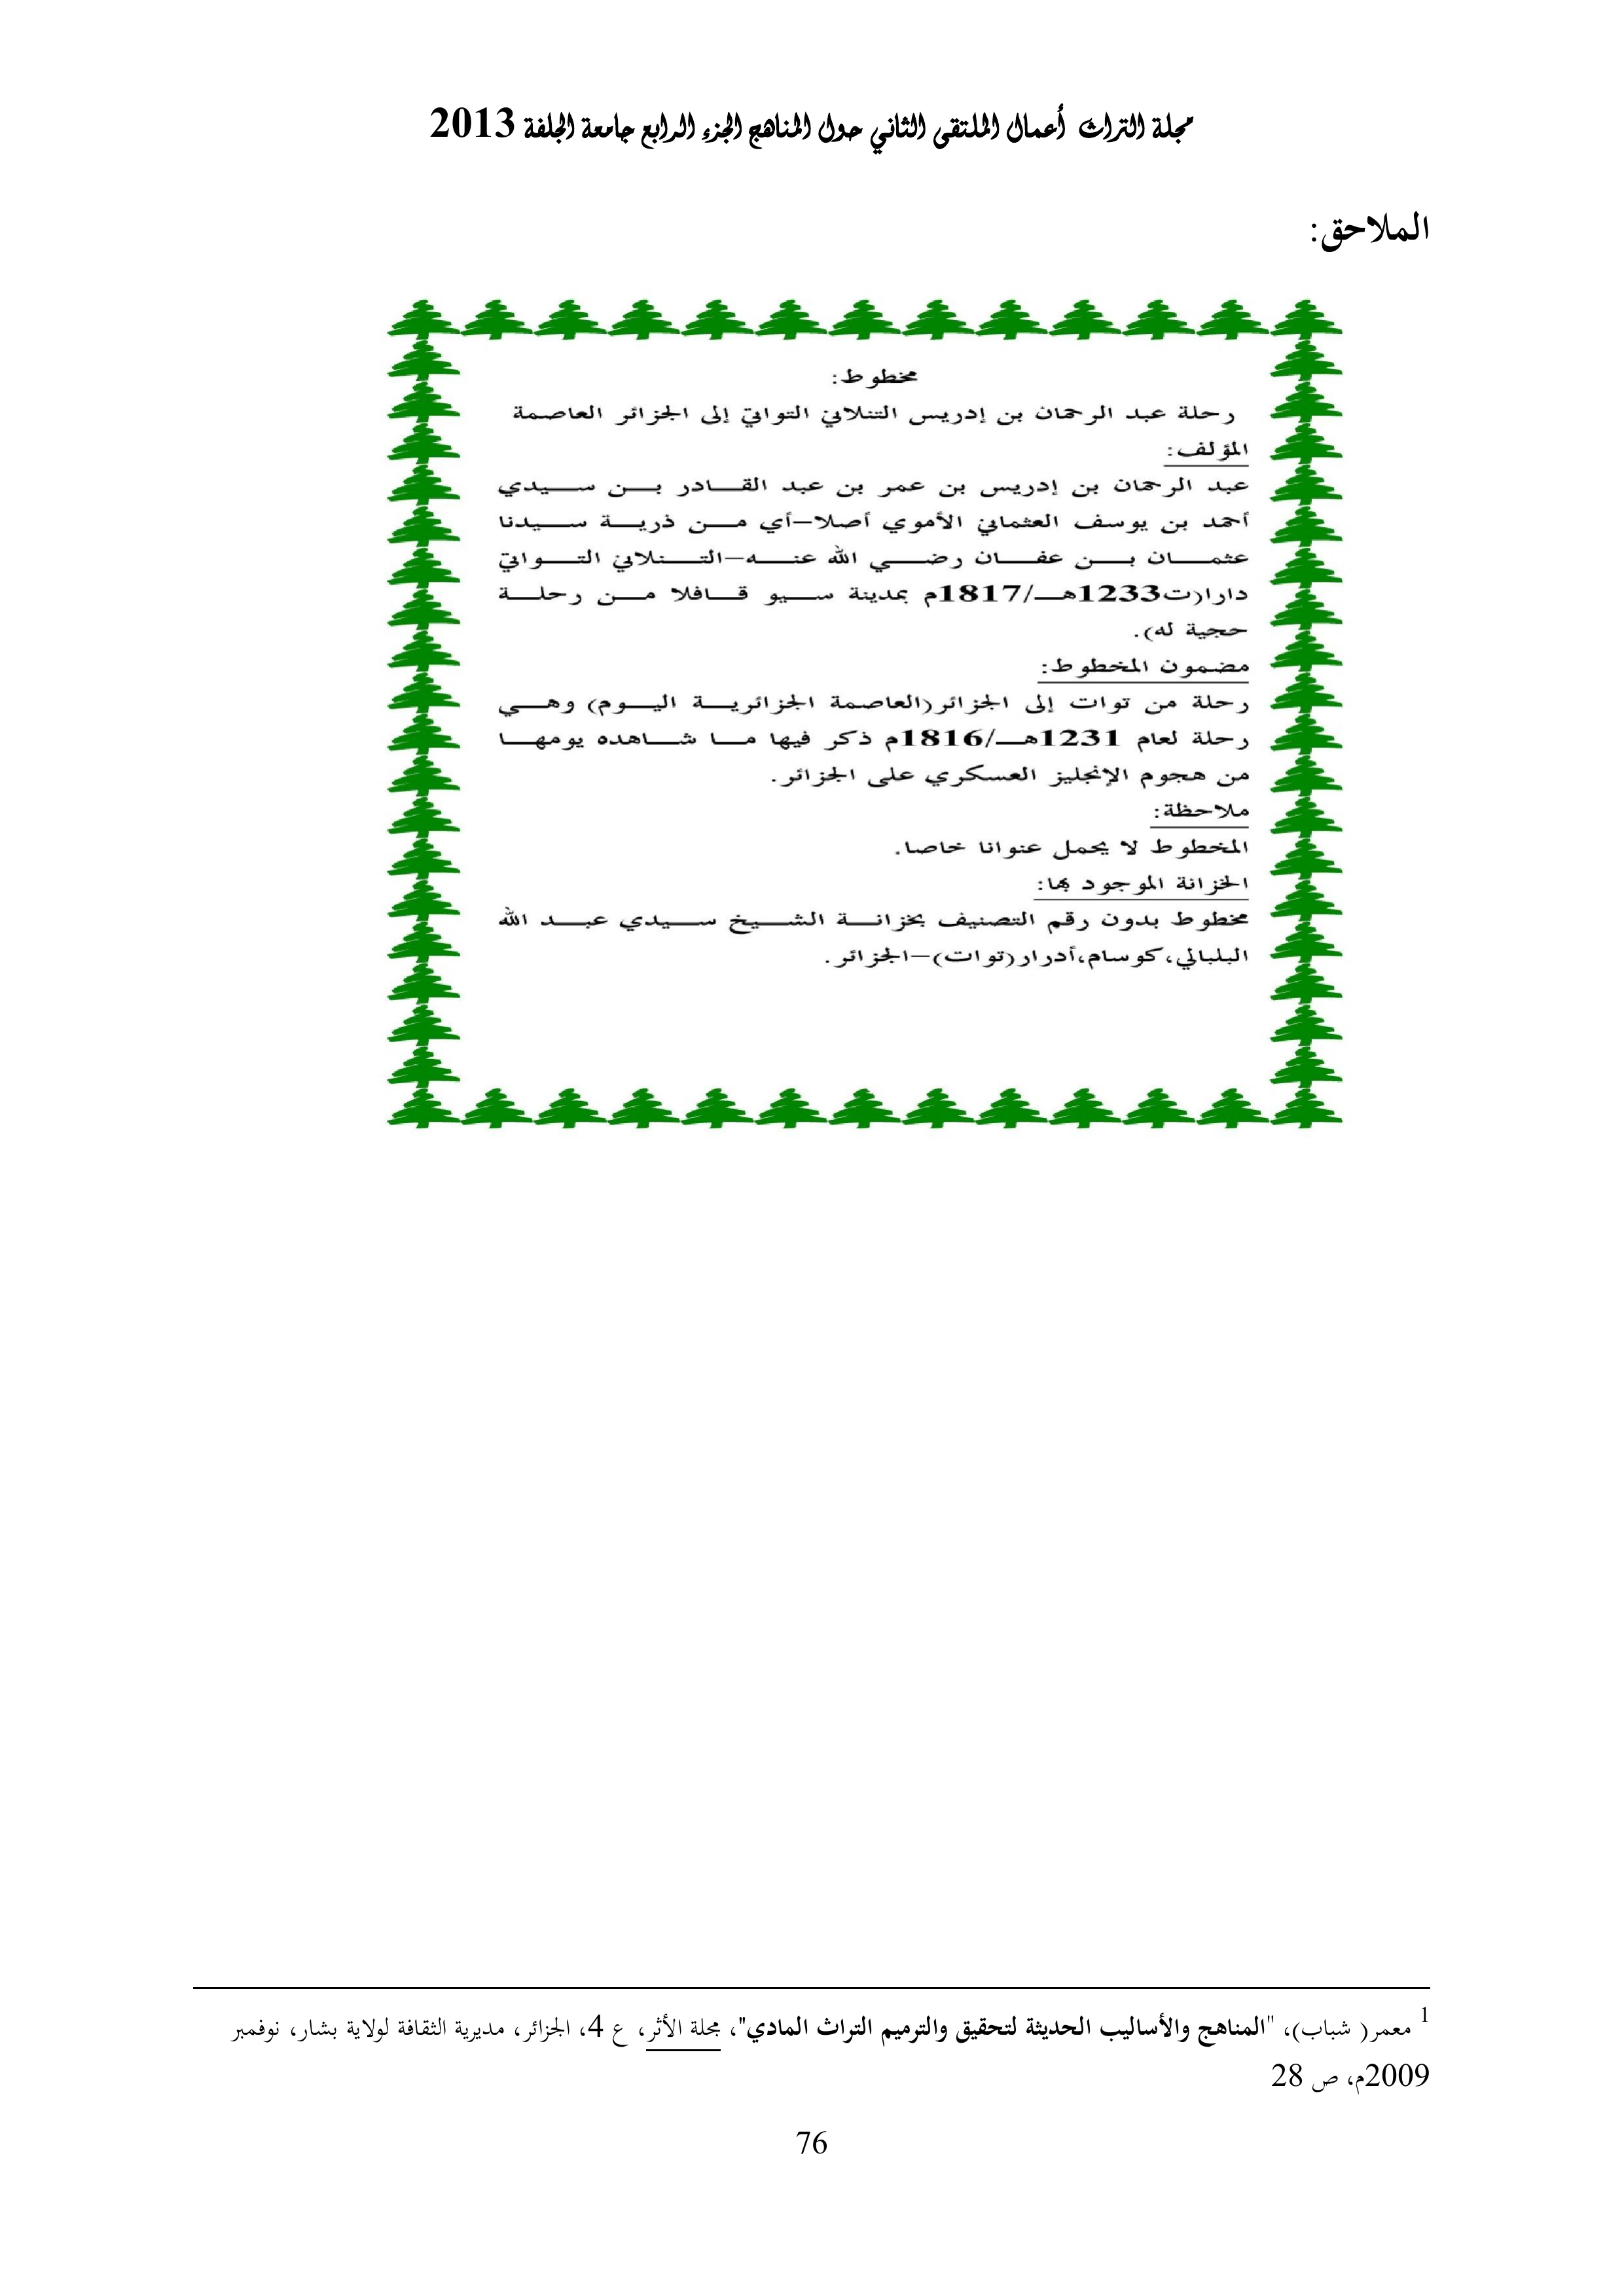 مجلة التراث أعمال الملتقى الثاني حول المناهج الجزء الرابع جامعة الجلفة 2013
الملاحق:
مخطوط:
رحلة عبد الرحمان بن إدريس التنلاني التواتي إلى الجزائر العاصمة
المؤلف:
عبد الرحمان بن إدريس بن عمر بن عبد القـــادر بـــن ســـيدي
أحمد بن يوسف العثماني الأموي أصلا–أي مـــن ذريـــة ســـيدنا
عثمـــان بـــن عفـــان رضـــي الله عنـــه–التـــنلاني التـــواتي
دارا(ت1233هـ/1817م بمدينة ســـيو قـــافلا مـــن رحلـــة
حجية له).
مضمون المخطوط:
رحلة من توات إلى الجزائر(العاصمة الجزائريـــة اليـــوم) وهـــي
رحلة لعام 1231هـ/1816م ذكر فيها مـــا شـــاهده يومهـــا
من هجوم الإنجليز العسكري على الجزائر.
ملاحظة:
المخطوط لا يحمل عنوانا خاصا.
الخزانة الموجود بها:
مخطوط بدون رقم التصنيف بخزانـــة الشـــيخ ســـيدي عبـــد الله
البلبالي،كوسام،أدرار(توات)–الجزائر.
1 معمر( شباب)، "المناهج والأساليب الحديثة لتحقيق والترميم التراث المادي"، مجلة الأثر، ع 4، الجزائر، مديرية الثقافة لولاية بشار، نوفمبر
2009م، ص 28
76